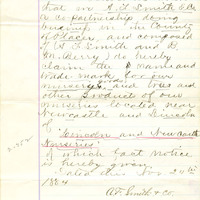 that we A. F. Smith & Co
a Co partnership, doing
business in the County
of Placer, and composed
of A. F. Smith and B.
Berry, do hereby
claim the name and
trade mark for our
nursery goods and trees and
other product of our
nurseries located near
Newcastle and Lincoln
of
"Lincoln and Newcastle
Nurseries"
of which last notice
is hereby given.
Dated this Nov 24th
1884
A. F. Smith & Co.